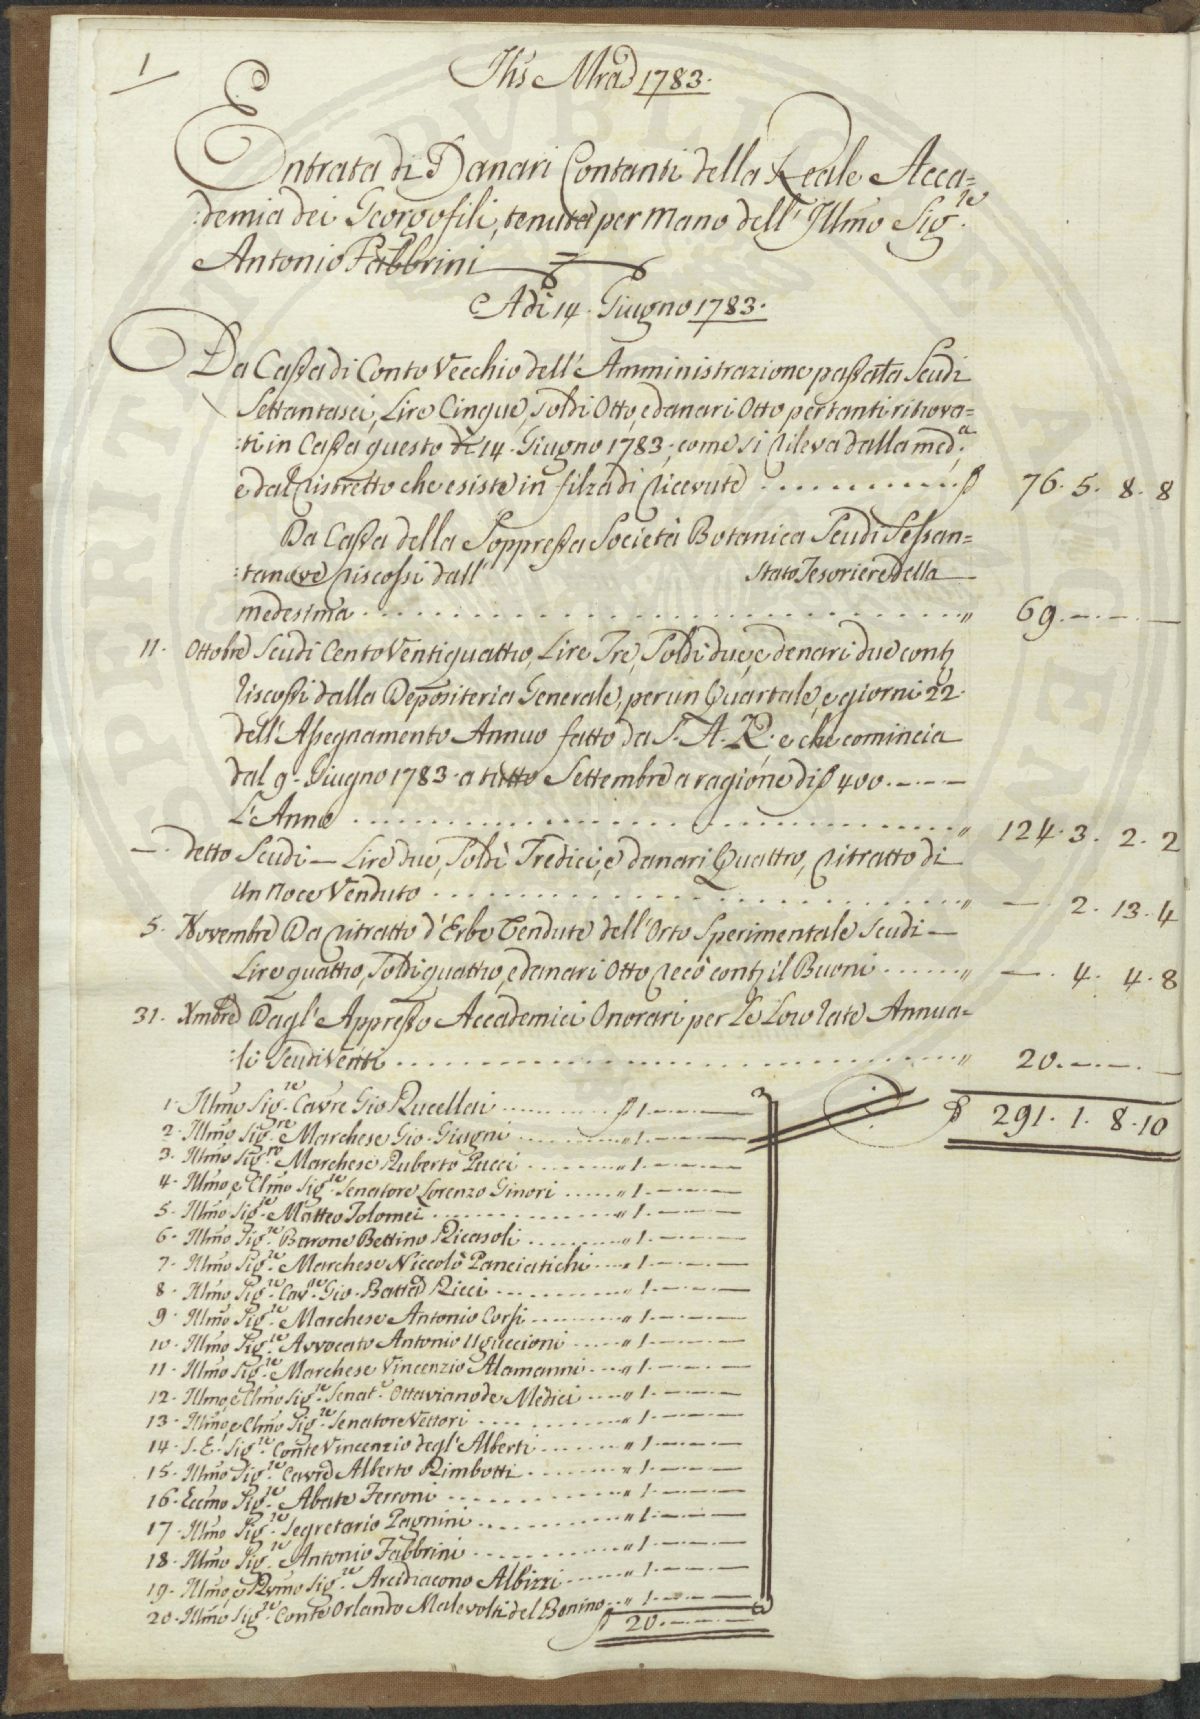 1
Jhs Mra 1783.
Entrata di Danari Contanti della Reale Acca=
:demia dei Georgofili, tenuta per mano dell' Illmo Sig.re
Antonio Fabbrini
Adi 14. Giugno 1783.
Da Cassa di Conto Vecchio dell' Amministrazione passata Scudi
Settantasei, Lire Cinque, soldi Otto, e danari Otto per tanti ritrova=
:ti in Cassa questo dì 14. Giugno 1783, come si rileva dalla med.a
e dal ristretto che esiste in filza di ricevute . . . . . . . . . . . 76. 5. 8. 8
Da Cassa della Soppressa Società Botanica Scudi Sessan=
:tanove riscossi dall' Stato Tesoriere della
medesima . . . . . . . . . . . . . . . . . . . . . . . . . . . . " 69. — . — . —
11. Ottobre Scudi Cento Ventiquattro, Lire Tre, Soldi due, e denari due conti
riscossi dalla Depositeria Generale, per un Quartale, e giorni 22.
dell' Assegnamento Annuo fatto da S. A. R. e che comincia
dal 9. Giugno 1783. a tutto Settembre a ragione di 400. — . — . —
L' Anno . . . . . . . . . . . . . . . . . . . . . . . . . . . . " 124. 3. 2. 2
— . detto Scudi — Lire due, Soldi Tredici, e danari Quattro, ritratto di
un noce Venduto . . . . . . . . . . . . . . . . . . . . . . " — . 2. 13. 4
5. Novembre Da ritratto d' Erbe Vendute dell' Orto Sperimentale Scudi —
Lire quattro, Soldi quattro, e danari Otto recò conti il Buoni . . . . . . " — . 4. 4. 8
31. Xmbre Dagl' Appresso Accademici Onorari per le Loro rate Annua=
:li Scudi Venti . . . . . . . . . . . . . . . . . . . . . . . . " 20. — . — . —
291. 1. 8. 10
1. Illmo Sig.re Cavre Gio Rucellai . . . . . . . . . 1. — . — . —
2. Illmo Sig.re Marchese Gio. Giugni . . . . . . . . . " 1. — . — . —
3. Illmo Sig.re Marchese Ruberto Pucci . . . . . . . . . " 1. — . — . —
4. Illmo, e Clmo Sig.re Senatore Lorenzo Ginori . . . . . . " 1. — . — . —
5. Illmo Sig.re Matteo Tolomei . . . . . . . . . . . . " 1. — . — . —
6. Illmo Sig.re Barone Bettino Ricasoli . . . . . . . . . " 1. — . — . —
7. Illmo Sig.re Marchese Niccolò Panciatichi . . . . " 1. — . — . —
8. Illmo Sig.re Cav.re Gio. Batta Ricci . . . . . . . . . " 1. — . — . —
9. Illmo Sig.re Marchese Antonio Corsi . . . . . . . . " 1. — . — . —
10. Illmo Sig.re Avvocato Antonio Uguccioni . . . . . " 1. — . — . —
11. Illmo Sig.re Marchese Vincenzio Alamanni . . . . . " 1. — . — . —
12. Illmo, e Clmo Sig.re Senat.e Ottaviano de Medici . . . . " 1. — . — . —
13. Illmo, e Clmo Sig.re Senatore Vettori . . . . . . . . . " 1. — . — . —
14. S. E. Sig.re Conte Vincenzio degl' Alberti . . . . . . . " 1. — . — . —
15. Illmo Sig.re Cavre Alberto Rimbotti . . . . . . . . . " 1. — . — . —
16. Eccmo Sig.re Abate Ferroni . . . . . . . . . . . . " 1. — . — . —
17. Illmo Sig.re Segretario Pagnini . . . . . . . . . . . " 1. — . — . —
18. Illmo Sig.re Antonio Fabbrini . . . . . . . . . . . " 1. — . — . —
19. Illmo, e Rvmo Sig.re Arcidiacono Albizzi . . . . . . " 1. — . — . —
20. Illmo Sig.re Conte Orlando Malevolti del Benino . . " 1. — . — . —
20. — . — . —